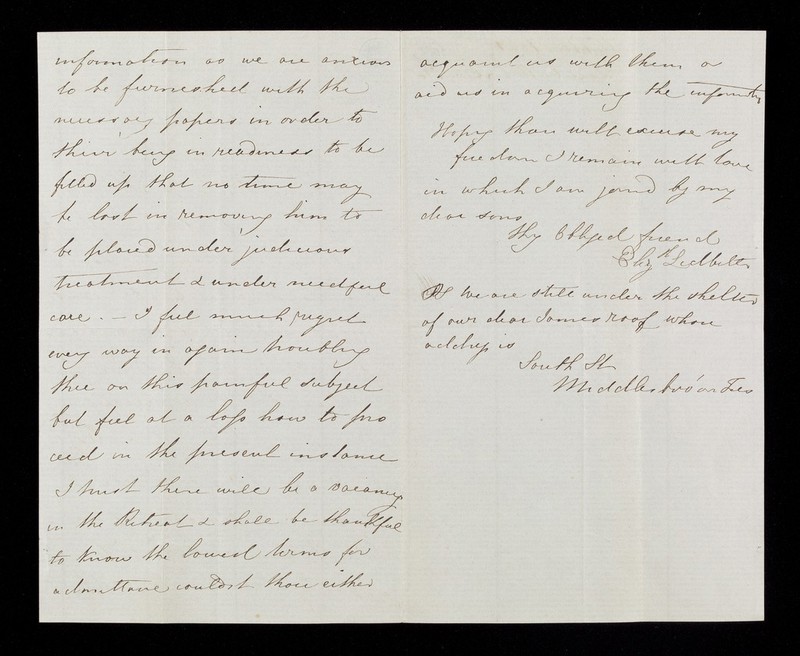 information as we are anxious
to be furnished with the
necessary papers in order to
their being in readiness to be
filled up that no time may
be lost in removing him to
be placed under judicious
treatment & under needful
care. – I feel much regret
every way in again troubling
thee on this painful subject
but feel at a loss how to pro
ceed in the present instance
I trust there will be a vacancy
in the Retreat & shall be thankful
to know the lowest terms for
admittance couldst thou either
acquaint us with them or
aid us in acquiring the information
Hoping thou wilt excuse my
freedom I remain with love
in which I am joined by my
dear sons
thy obliged friend
Elizth Ledbetter
PS We are still under the shelter
of our dear James roof whose
address is
South St
Middlesbro' on Tees